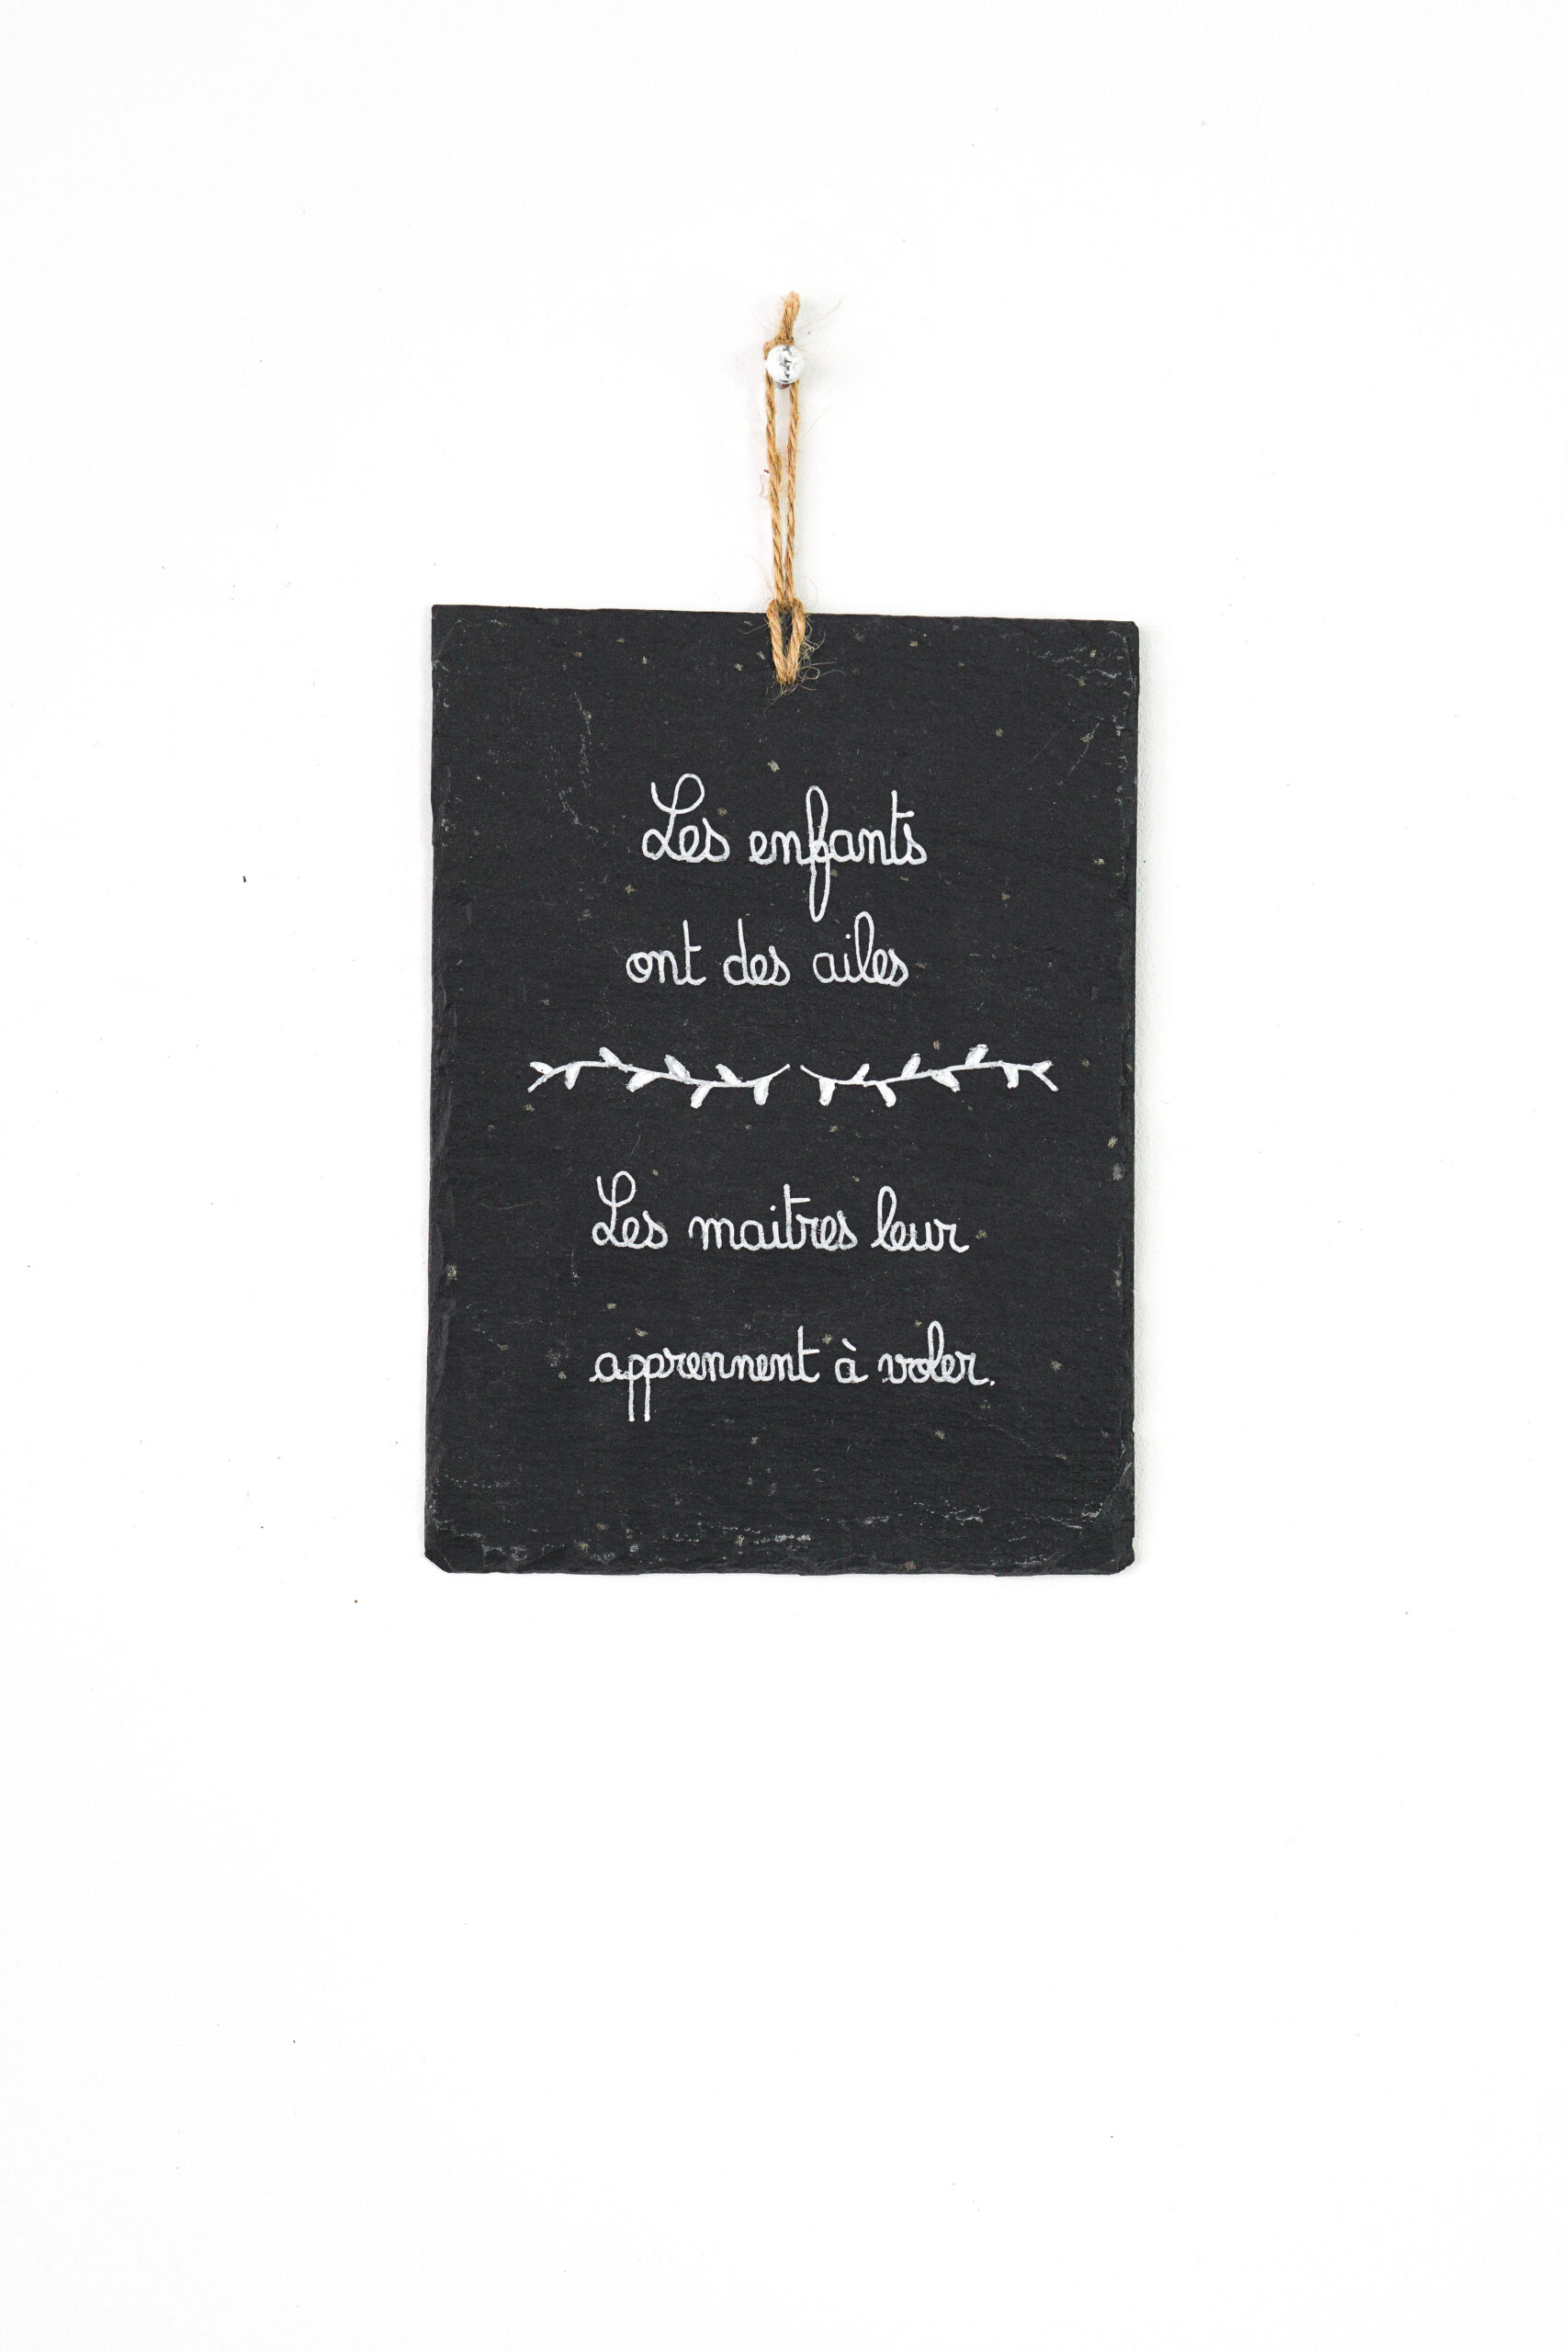 Les enfants
ont des ailes
Les maitres leur
apprennent à voler.